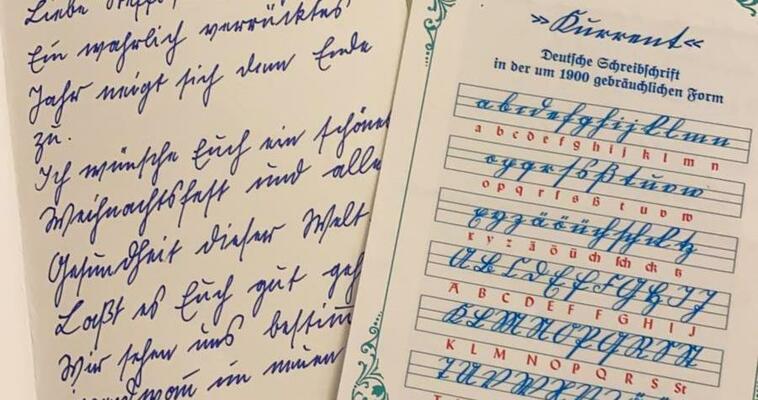 Liebe
Ein wahrlich verrücktes
Jahr neigt sich dem Ende
zu.
Ich wünsche Euch ein schönes
Weihnachtsfest und alle
Gesundheit dieser Welt
Laßt es Euch gut
Wir sehen uns
im neuen
»Kurrent«
Deutsche Schreibschrift
in der um 1900 gebräuchlichen Form
a b c d e f g h i j k l m n
a b c d e f g h i j k l m n
o p q r ſ s ß t u v w
o p q r ſ s ß t u v w
x y z ä ö ü ch ſch ck tz
x y z ä ö ü ch ſch ck tz
A B C D E F G H I J
A B C D E F G H I J
K L M N O P Q R S St
K L M N O P Q R S St
T U V W X Y Z Ä Ö Ü